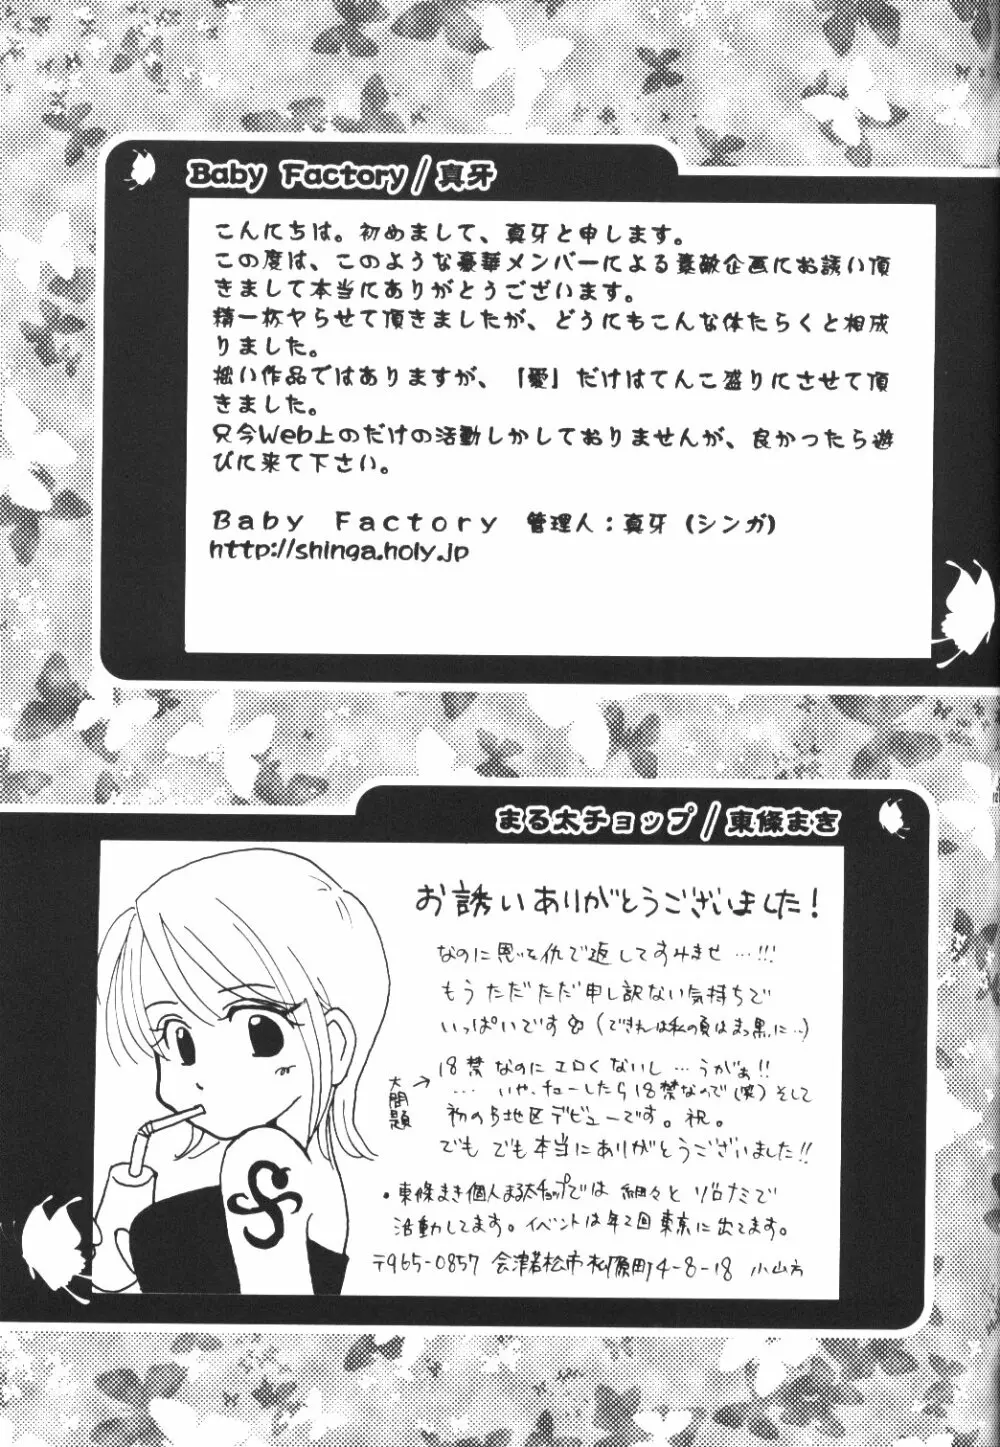 Baby Factory/真牙
こんにちは。初めまして、真牙と申します。
この度は、このような豪華メンバーによる素敵企画にお誘い頂
きまして本当にありがとうございます。
精一杯ヤらせて頂きましたが、どうにもこんな体たらくと相成
りました。
拙い作品ではありますが、「愛」だけはてんこ盛りにさせて頂
きました。
只今Web上のだけの活動しかしておりませんが、良かったら遊
びに来て下さい。
Baby Factory 管理人：真牙（シンガ）
http://shinga.holy.jp
まる太チョップ/東條まき
お誘いありがとうございました！
なのに恩を仇で返してすみませ…!!!
もう ただただ申し訳ない気持ちで
いっぱいです（できれば私の頁はまっ黒に…）
大問題→
18禁なのに エロくないし …うがぁ!!
…いや、チューしたら18禁なので（笑）そして
初の 地区デビューです。祝。
でも でも本当にありがとうございました!!
・東條まき個人まる太チョップでは 細々と ゾロナミで
活動してます。イベントは年2回東京に出てます。
〒965-0857 会津若松市 町4-8-18 小山方